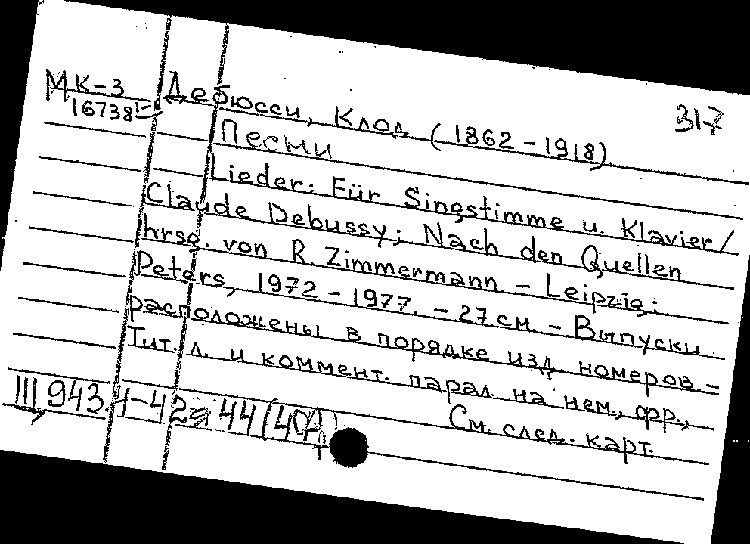 МК-3 Дебюсси, Клод (1862-1918) 317
16738
Песни
Lieder: Für Singstimme u. Klavier/
Claude Debussy; Nach den Quellen
hrsg. von R. Zimmermann - Leipzig:
Peters, 1972-1977. - 27 см. - Выпуски
расположены в порядке изд. номеров. -
Тит. л. и коммент. парал. на нем., фр.,
См. след. карт.
III, 943